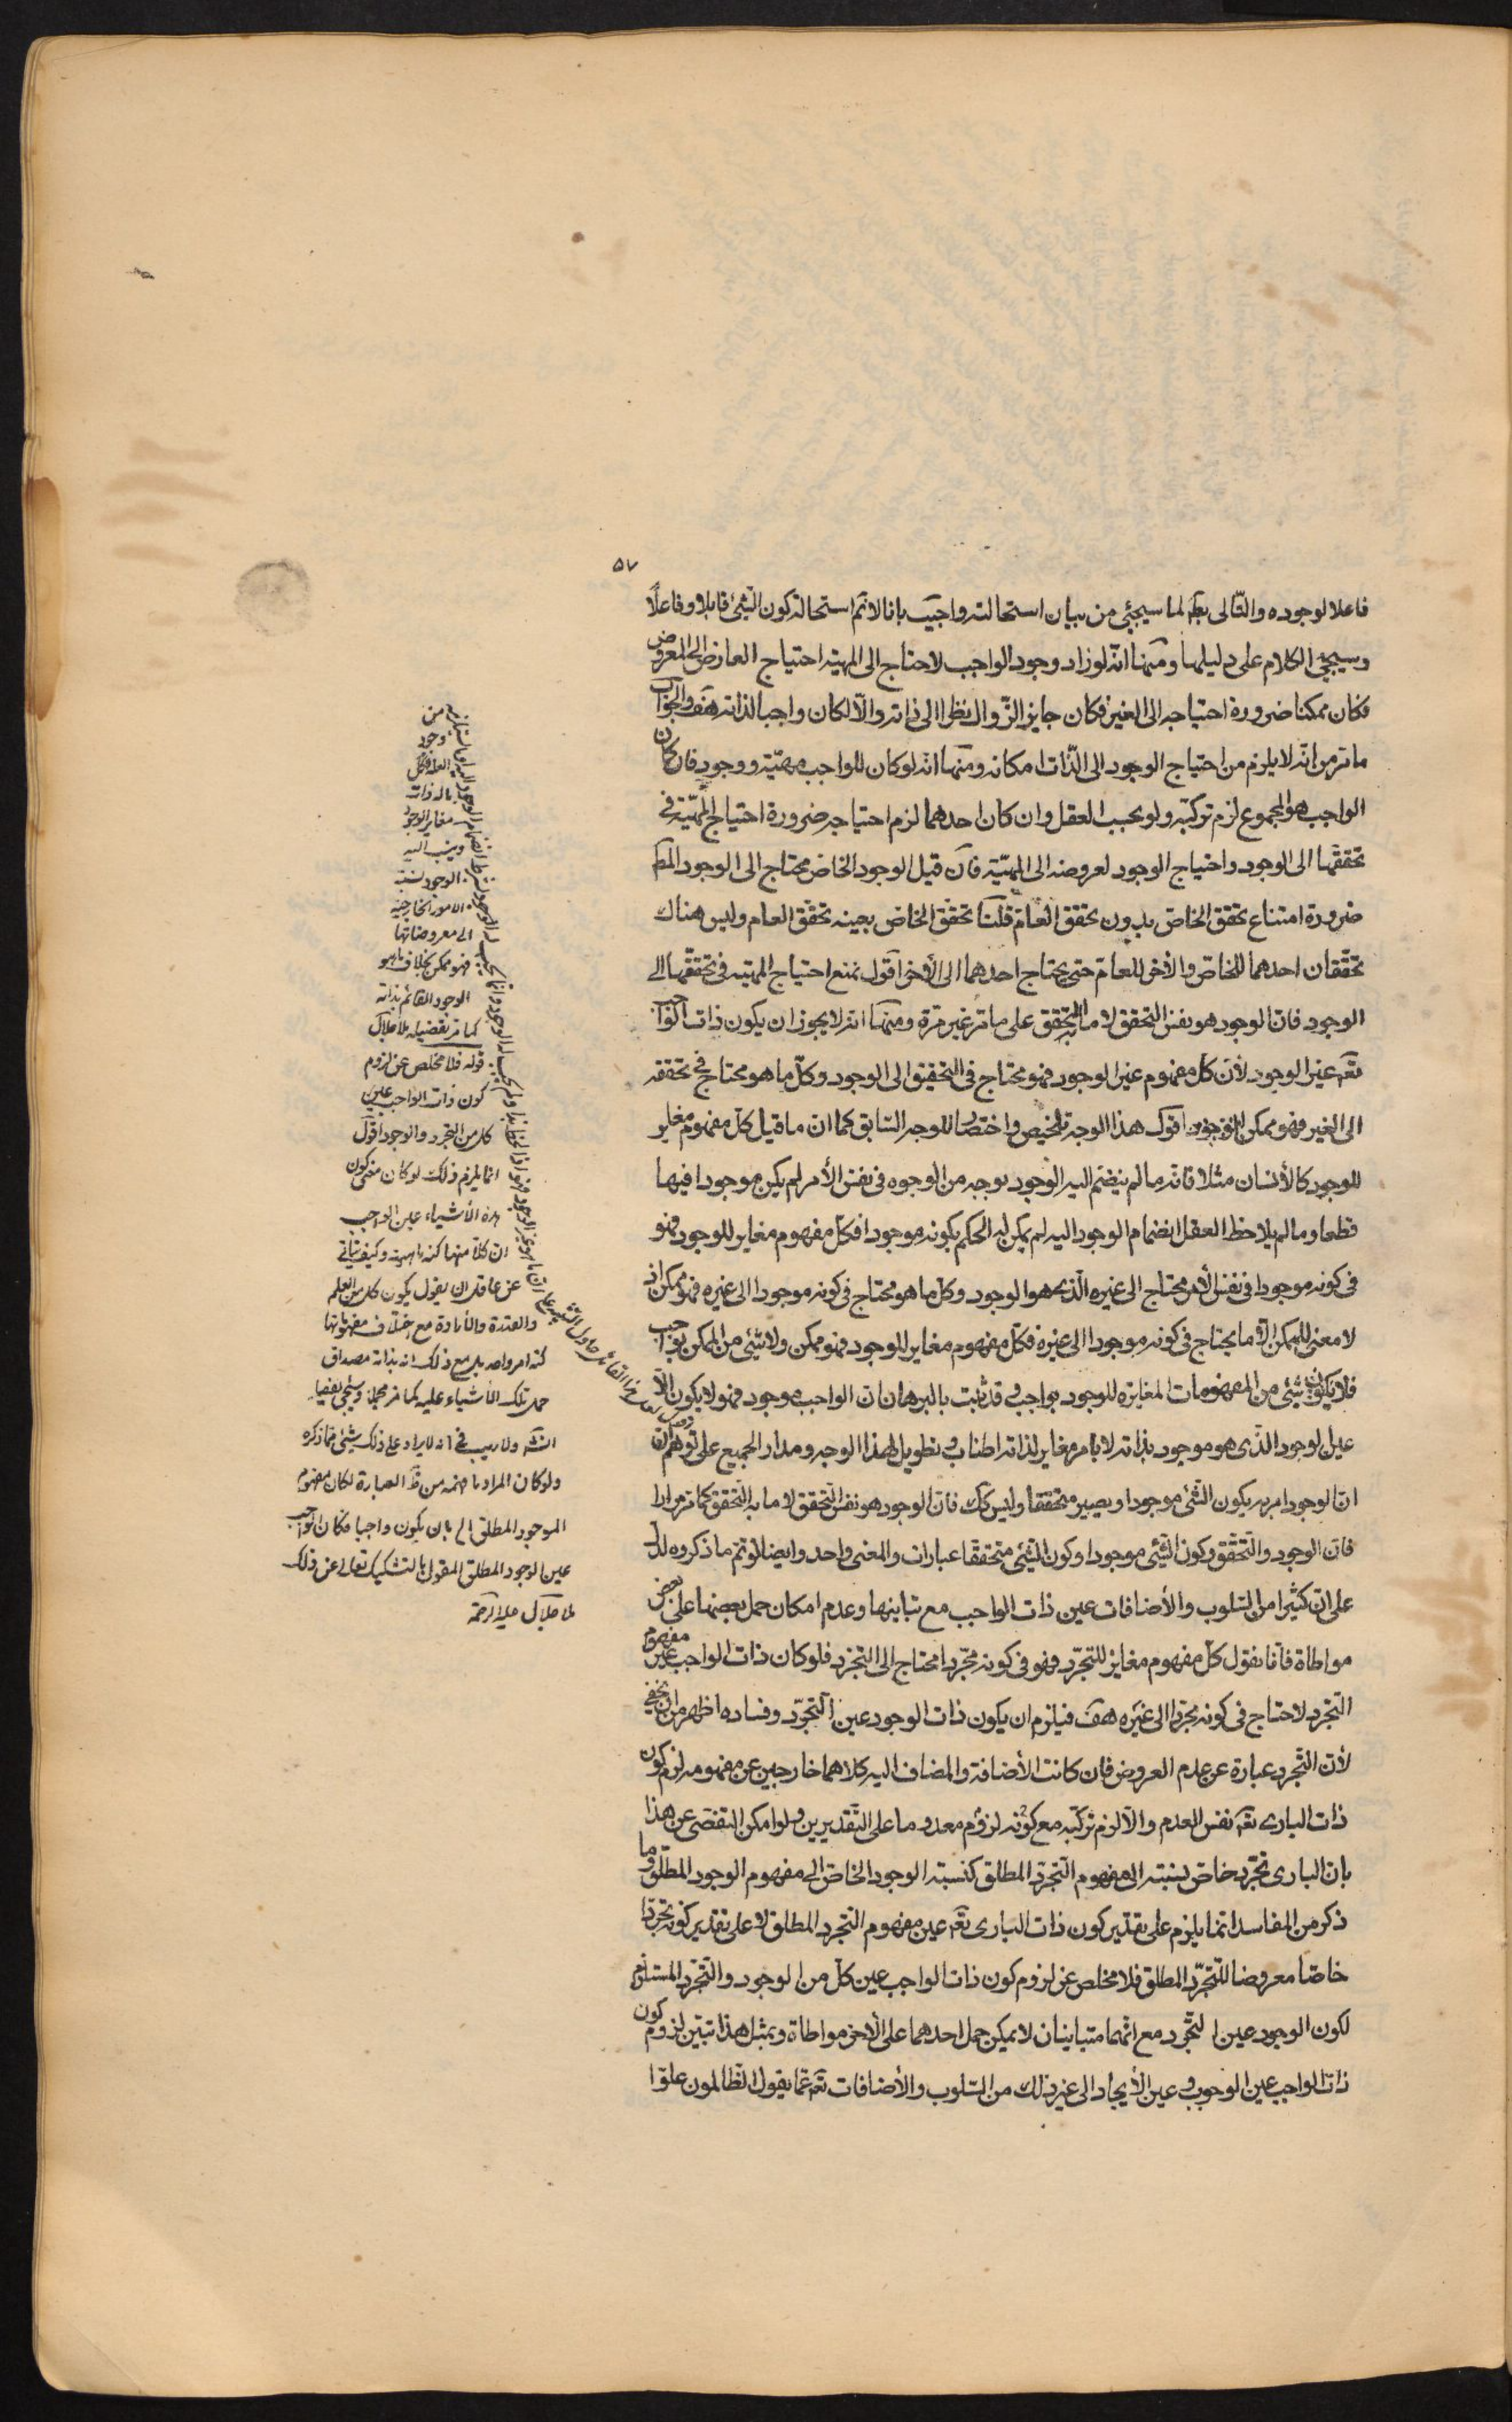 ۵۷
فاعلا لوجوده والتّالى بط لما سيجئى من بيان استحالته واجيب بانا لا نم استحالة كون الشئ قابلا وفاعلًا
وسيجئ الكلام على دليلها ومنها انّه لو زاد وجود الواجب لاحتاج الى المهيته احتياج العارض الى المعروض
فكان ممكنا ضرورة احتياجه الى الغير فكان جايز الزّوال نظرا الى ذاته والّا لكان واجبا لذاته هف والجواب
ما مّر من انّه لا يلزم من احتياج الوجود الى الذّات امكانه ومنها انه لو كان للواجب مهيّته ووجود فان كان
الواجب هو المجموع لزم تركبّه ولو بحسب العقل وان كان احدهما لزم احتياجه ضرورة احتياج المهيّته فى
تحققّها الى الوجود واحتياج الوجود لعروضه الى المهيّته فان قيل الوجود الخاص محتاج الى الوجود المط
ضرورة امتناع تحقق الخاص بدون تحقق العام قلنا تحقّق الخاض بعينه تحقّق العام وليس هناك
تحقّقان احدهما للخاص والأخر للعامّ حتى يحتاج احدهما الى الأخر اقول نمنع احتياج المهيته فى تحققّها الى
الوجود فان الوجود هو نفس التحقق لا ما به التحقق على ما مّر غير مّرة ومنها انّه لا يجوز ان يكون ذات الواجب
تعه غير الوجود لأن كل مفهوم غير الوجود فهو محتاج فى التحقيق الى الوجود وكلّ ما هو محتاج فى تحققه
الى الغير فهو ممكن اقول هذا الوجه تلخيص واختصار للوجه السّابق كما ان ما قيل كلّ مفهوم مغاير
للوجود كالأنسان مثلا فانه ما لم ينضم اليه الوجود بوجه من الوجوه فى نفس الأمر لم يكن موجودا فيها
قطعا وما لم يلاحظ العقل انضمام الوجود اليه لم يمكن له الحكم بكونه موجودا فكل مفهوم مغاير للوجود فهو
فى كونه موجودا فى نفس الأمر محتاج الى غيره الّذى هو الوجود وكلّ ما هو محتاج فى كونه موجودا الى غيره فهو ممكن اذ
لا معنى للممكن الّا ما يحتاج فى كونه موجودا الى غيره فكلّ مفهوم مغاير للوجود فهو ممكن ولا شئ من الممكن بواجب
فلا يكون شئى من المفهومات المغايرة للوجود بواجب وقد ثبت بالبرهان ان الواجب موجود فهو لا يكون الّا
عين الوجود الذّى هو موجود بذاته لا بامر مغاير لذاته اطناب وتطويل لهذا الوجه ومدار الجميع على توهّم
انّ الوجود امر به يكون الشّئ موجودا ويصير متحققا وليس كك فان الوجود هو نفس التّحقق لا ما به التّحقق كما مّر مرارا
فان الوجود والتّحقّق وكون الشّئى موجودا وكون الشّئى متحققّا عبارات والمعنى واحد وايضا لو تمّ ما ذكروه لدلّ
على ان كثيرا من السّلوب والأضافات عين ذات الواجب مع تباينها وعدم امكان حمل بعضها على بعض
مواطاة فانا نقول كلّ مفهوم مغاير للتجرّد فهو فى كونه مجّردا محتاج الى التجّرد فلو كان ذات الواجب غير مفهوم
التّجرّد لاحتاج فى كونه مجرّدا الى غيره هف فيلزم ان يكون ذات الوجود عين التّجرّد وفساده اظهر من ان يخفى
لأن التّجرد عبارة عن عدم العروض فان كانت الأضافة والمضاف اليه كلاهما خارجين عن مفهومه لزم كون
ذات البارى تعه نفس العدم والّا لزم تركبّه مع كونه لزوم معدوما على التّقديرين ولو امكن التفصّى عن هذا
بان البارى تجّرد خاص نسبته الى مفهوم التّجرّد المطلق كنسبة الوجود الخاصّ الى مفهوم الوجود المطلق وما
ذكر من المفاسد انّما يلزم على تقدير كون ذات البارى تعه عين مفهوم التجّرد المطلق لا على تقدير كونه تجّردا
خاصّا معروضا للتّجرّد المطلق فلا مخلص عن لزوم كون ذات الواجب عين كلّ من الوجود والتّجرّد المستلزم
لكون الوجود عين التجّرد مع انّهما متباينان لا يمكن حمل احدهما على الأخر مواطاة وبمثل هذا تبيّن لزوم كون
ذات الواجب عين الوجوب وعين الأيجاد الى غير ذلك من السّلوب والأضافات تعه عمّا يقول الظّالمون علوّا
من
وجود
ماله ذات
مغاير الوجود
وينسب اليه
الوجود نسبة
الامور الخارجية
الى معروضاتها
فهو ممكن بخلاف ما هو
الوجود القائم بذاته
كما مر تفصيله ملا جلال
قوله فلا مخلص عن لزوم
كون ذات الواجب عين
كل من التجرد والوجود اقول
انما يلزم ذلك لو كان معنى كون
هذه الأشياء عين الواجب
ان كلا منها كنه ماهيته وكيف يتاتى
عن عاقل ان يقول يكون كل من العلم
والقدرة والأرادة مع اختلاف مفهوماتها
كنه امر واحد بل مع ذلك انه بذاته مصداق
حمل تلك الأشياء عليه كما مر مجملا وسيجئ تفصيله
انشه ولا ريب فى انه لا يراد على ذلك شئ مما ذكره
ولو كان المراد ما فهمه من ظ العبارة لكان مفهوم
الموجود المطلق الى بان يكون واجبا فكان الواجب
عين الوجود المطلق المقول بالتشكيك تعالى عن ذلك
ملا جلال عليه الرحمة